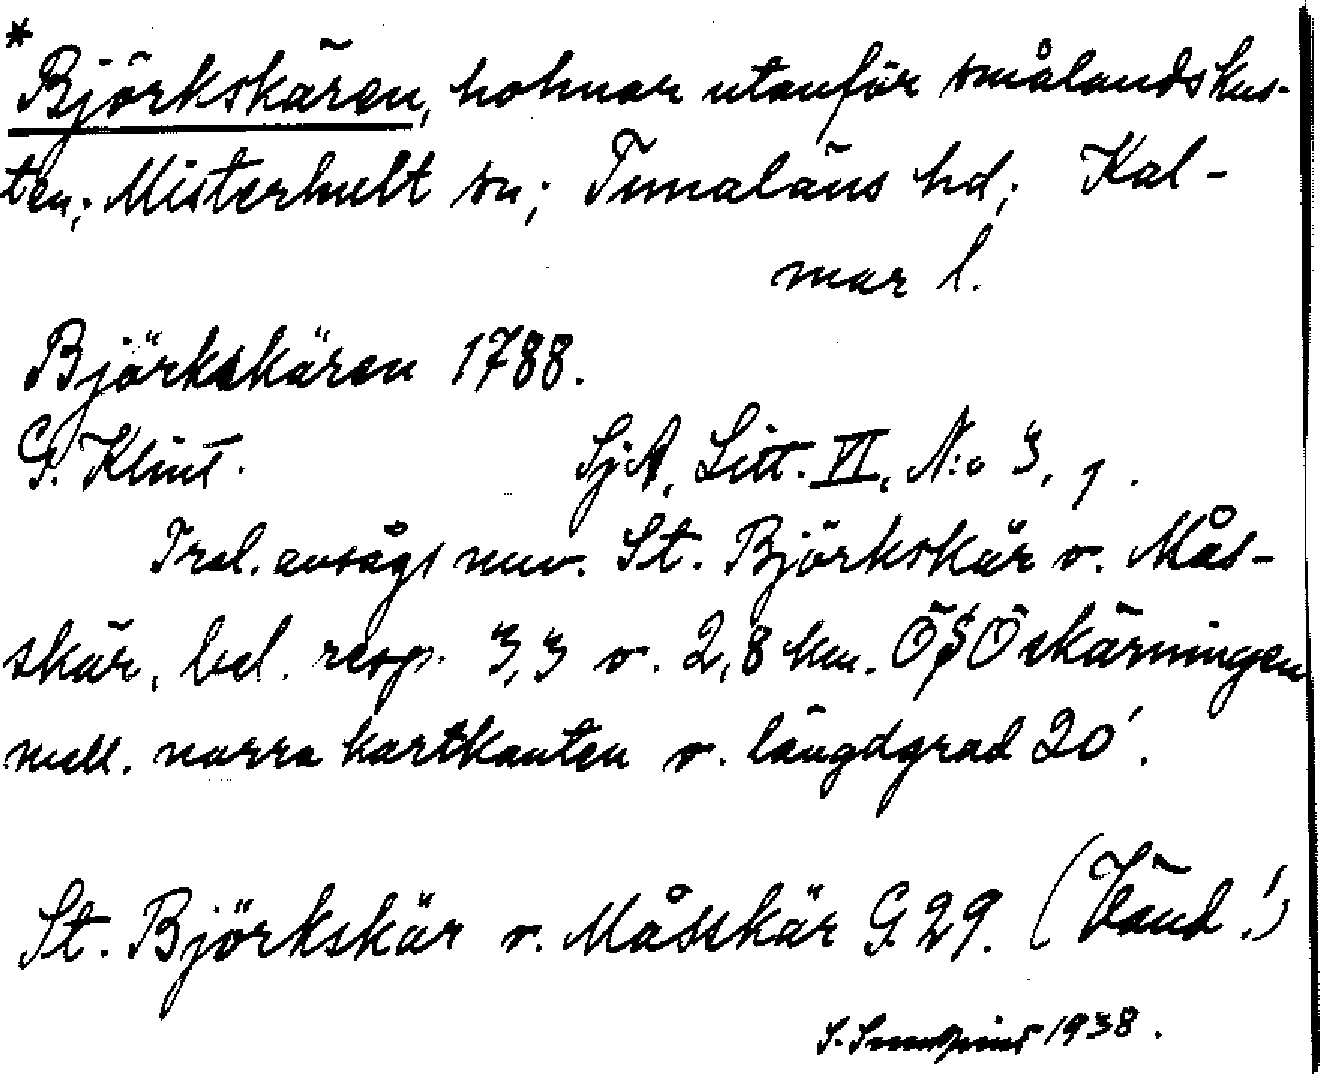 * Björkskären, holmar utanför smålandskus-
ten; Misterhult sn; Tunaläns hd; Kal-
mar l.
Björkskären 1788.
G. Klint. SjA, Litt. VI, N:o 3, 1.
Trol. avsågs nuv. St. Björkskär o. Mås-
skär, bel. resp. 3,3 o. 2,8 km. ÖSÖ skärningen
mell. norra kartkanten o. längdgrad 20'.
St. Björkskär o. Måsskär G. 29. (Vänd!)
S. 1938.